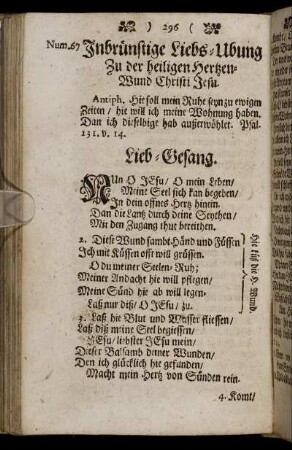 ) 296 (
Num. 67 Inbrünstige Liebs-Ubung
Zu der heiligen Hertzen-
Wund Christi Jesu.
Antiph. Hie soll mein Ruhe seyn zu ewigen
Zeiten/ hie will ich meine Wohnung haben.
Dan ich dieselbige hab außerwöhlet. Psal.
131. v. 14.
Lieb-Gesang.
NUn O JEsu/ O mein Leben/
Meine Seel sich kan begeben/
In dein offnes Hertz hinein.
Dan die Lantz durch deine Seythen/
Mit den Zugang thut bereithen.
2. Diese Wund sambt Händ und Füssen
Ich mit Küssen offt will grüssen.
O du meiner Seelen-Ruh;
Meiner Andacht hie will pflegen/
Meine Sünd hie ab will legen.
Laß nur diß/ O JEsu/ zu.
3. Laß hie Blut und Wasser fliessen/
Laß diß meine Seel begiessen/
JEsu/ liebster JEsu mein/
Dieser Balsamb deiner Wunden/
Den ich glücklich hie gefunden/
Macht mein Hertz von Sünden rein.
Hie küßt die H. Wund.
4. Komt/